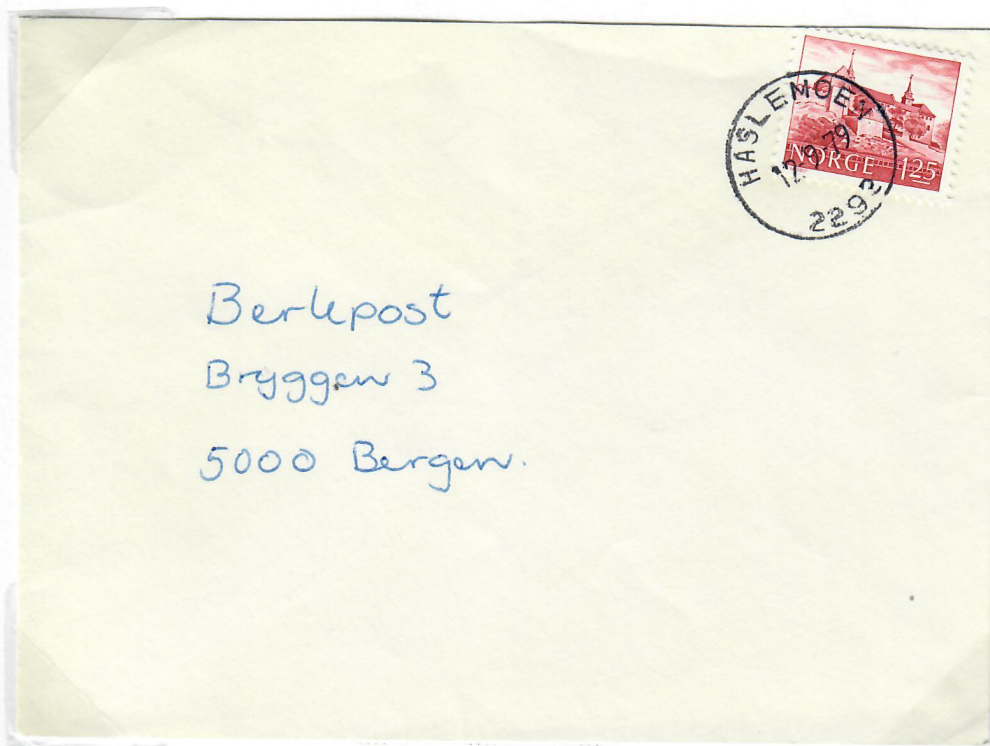 HASLEMOEN
12.9.79
2292
NORGE 125
Berlepost
Bryggen 3
5000 Bergen.